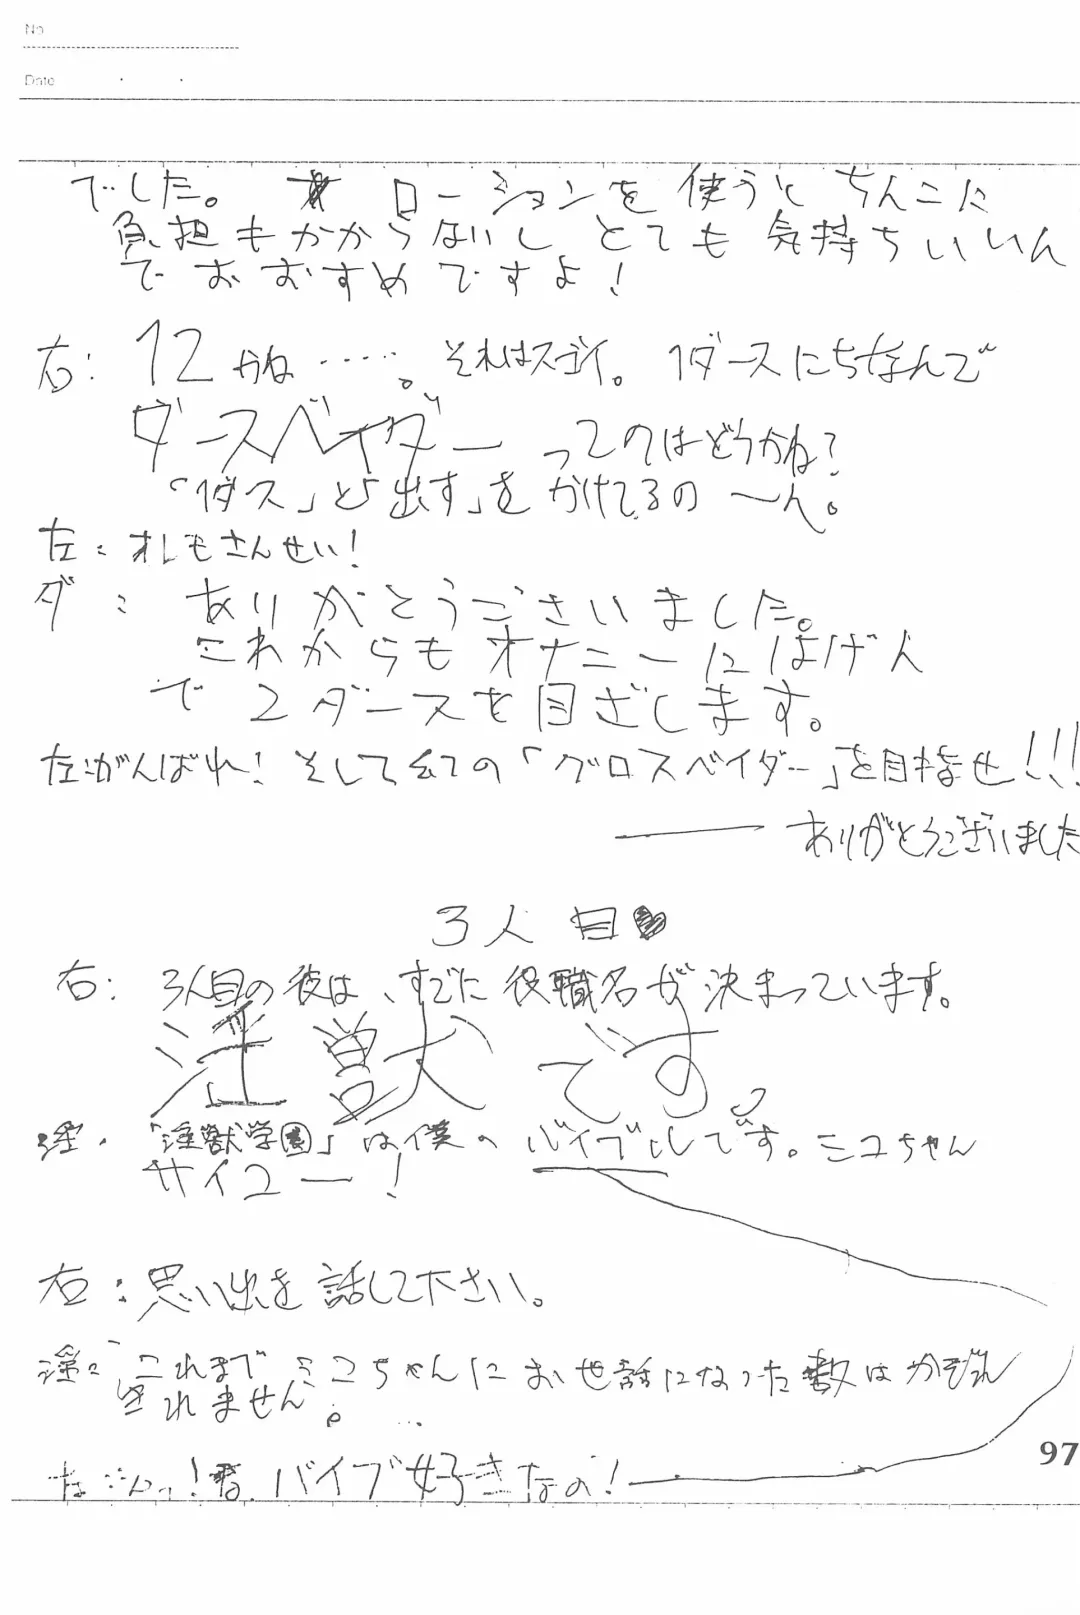 No
Date
でした。 ローションを使うとちんこに
負担もかからないしとても気持ちいいん
でおおすめですよ!
右: 12かね……。それはスゴイ。1ダースにちなんで
ダースベイダーってのはどうかね?
「1ダス」と「出す」をかけてるの〜ん。
左: オレもさんせい!
ダ: ありがとうございました。
これからもオナニーにはげん
で2ダースを目ざします。
左:がんばれ!そしての「グロスベイダー」を目指せ!!!
——ありがとうございました
3人目♥
右: 3人目の彼は、すでに役職名が決まっています。
淫獣です。
淫:「淫獣学園」は僕のバイブルです。ミコちゃん
サイコー!
右:思い出を話して下さい。
淫:これまでミコちゃんにお世話になった数はかぞえ
きれません。…
左:んっ!君、バイブ好きなの!
97